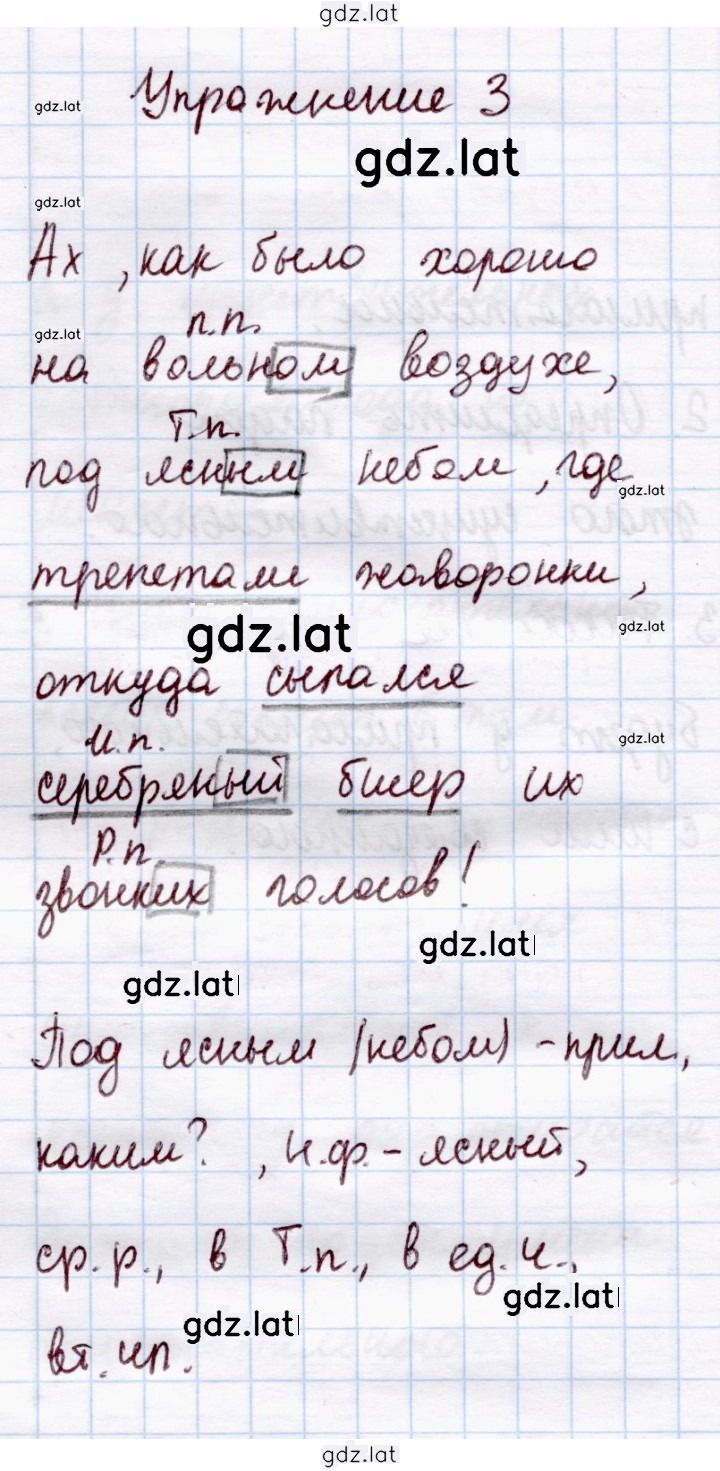 gdz.lat
gdz.lat
Упражнение 3
gdz.lat
gdz.lat
Ах, как было хорошо
gdz.lat
п.п.
на вольном воздухе,
Т.п.
под ясным небом, где
gdz.lat
трепетали жаворонки,
gdz.lat
gdz.lat
откуда сыпался
И.п.
gdz.lat
серебряный бисер их
Р.п.
звонких голосов!
gdz.lat
gdz.lat
Под ясным (небом) - прил.,
каким?, н.ф. - ясный,
ср.р., в Т.п., в ед.ч.,
gdz.lat
gdz.lat
вт. чл.
gdz.lat